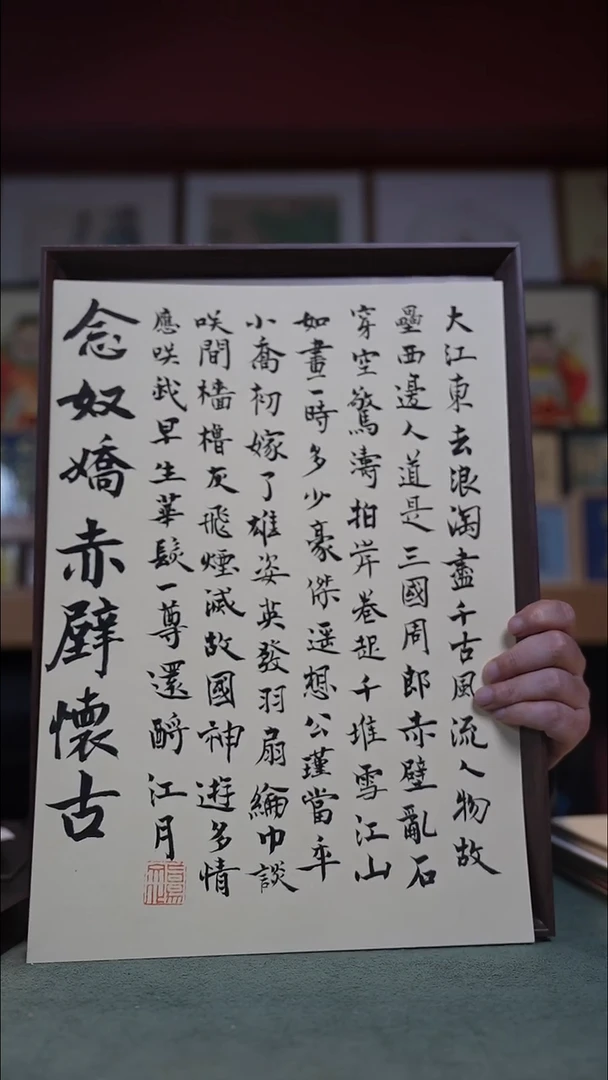 大江東去浪淘盡千古風流人物故
壘西邊人道是三國周郎赤壁亂石
穿空驚濤拍岸卷起千堆雪江山
如畫一時多少豪傑遥想公瑾當年
小喬初嫁了雄姿英發羽扇綸巾談
咲間檣櫓灰飛煙滅故國神遊多情
應咲我早生華髮一尊還酹江月
念奴嬌赤壁懷古